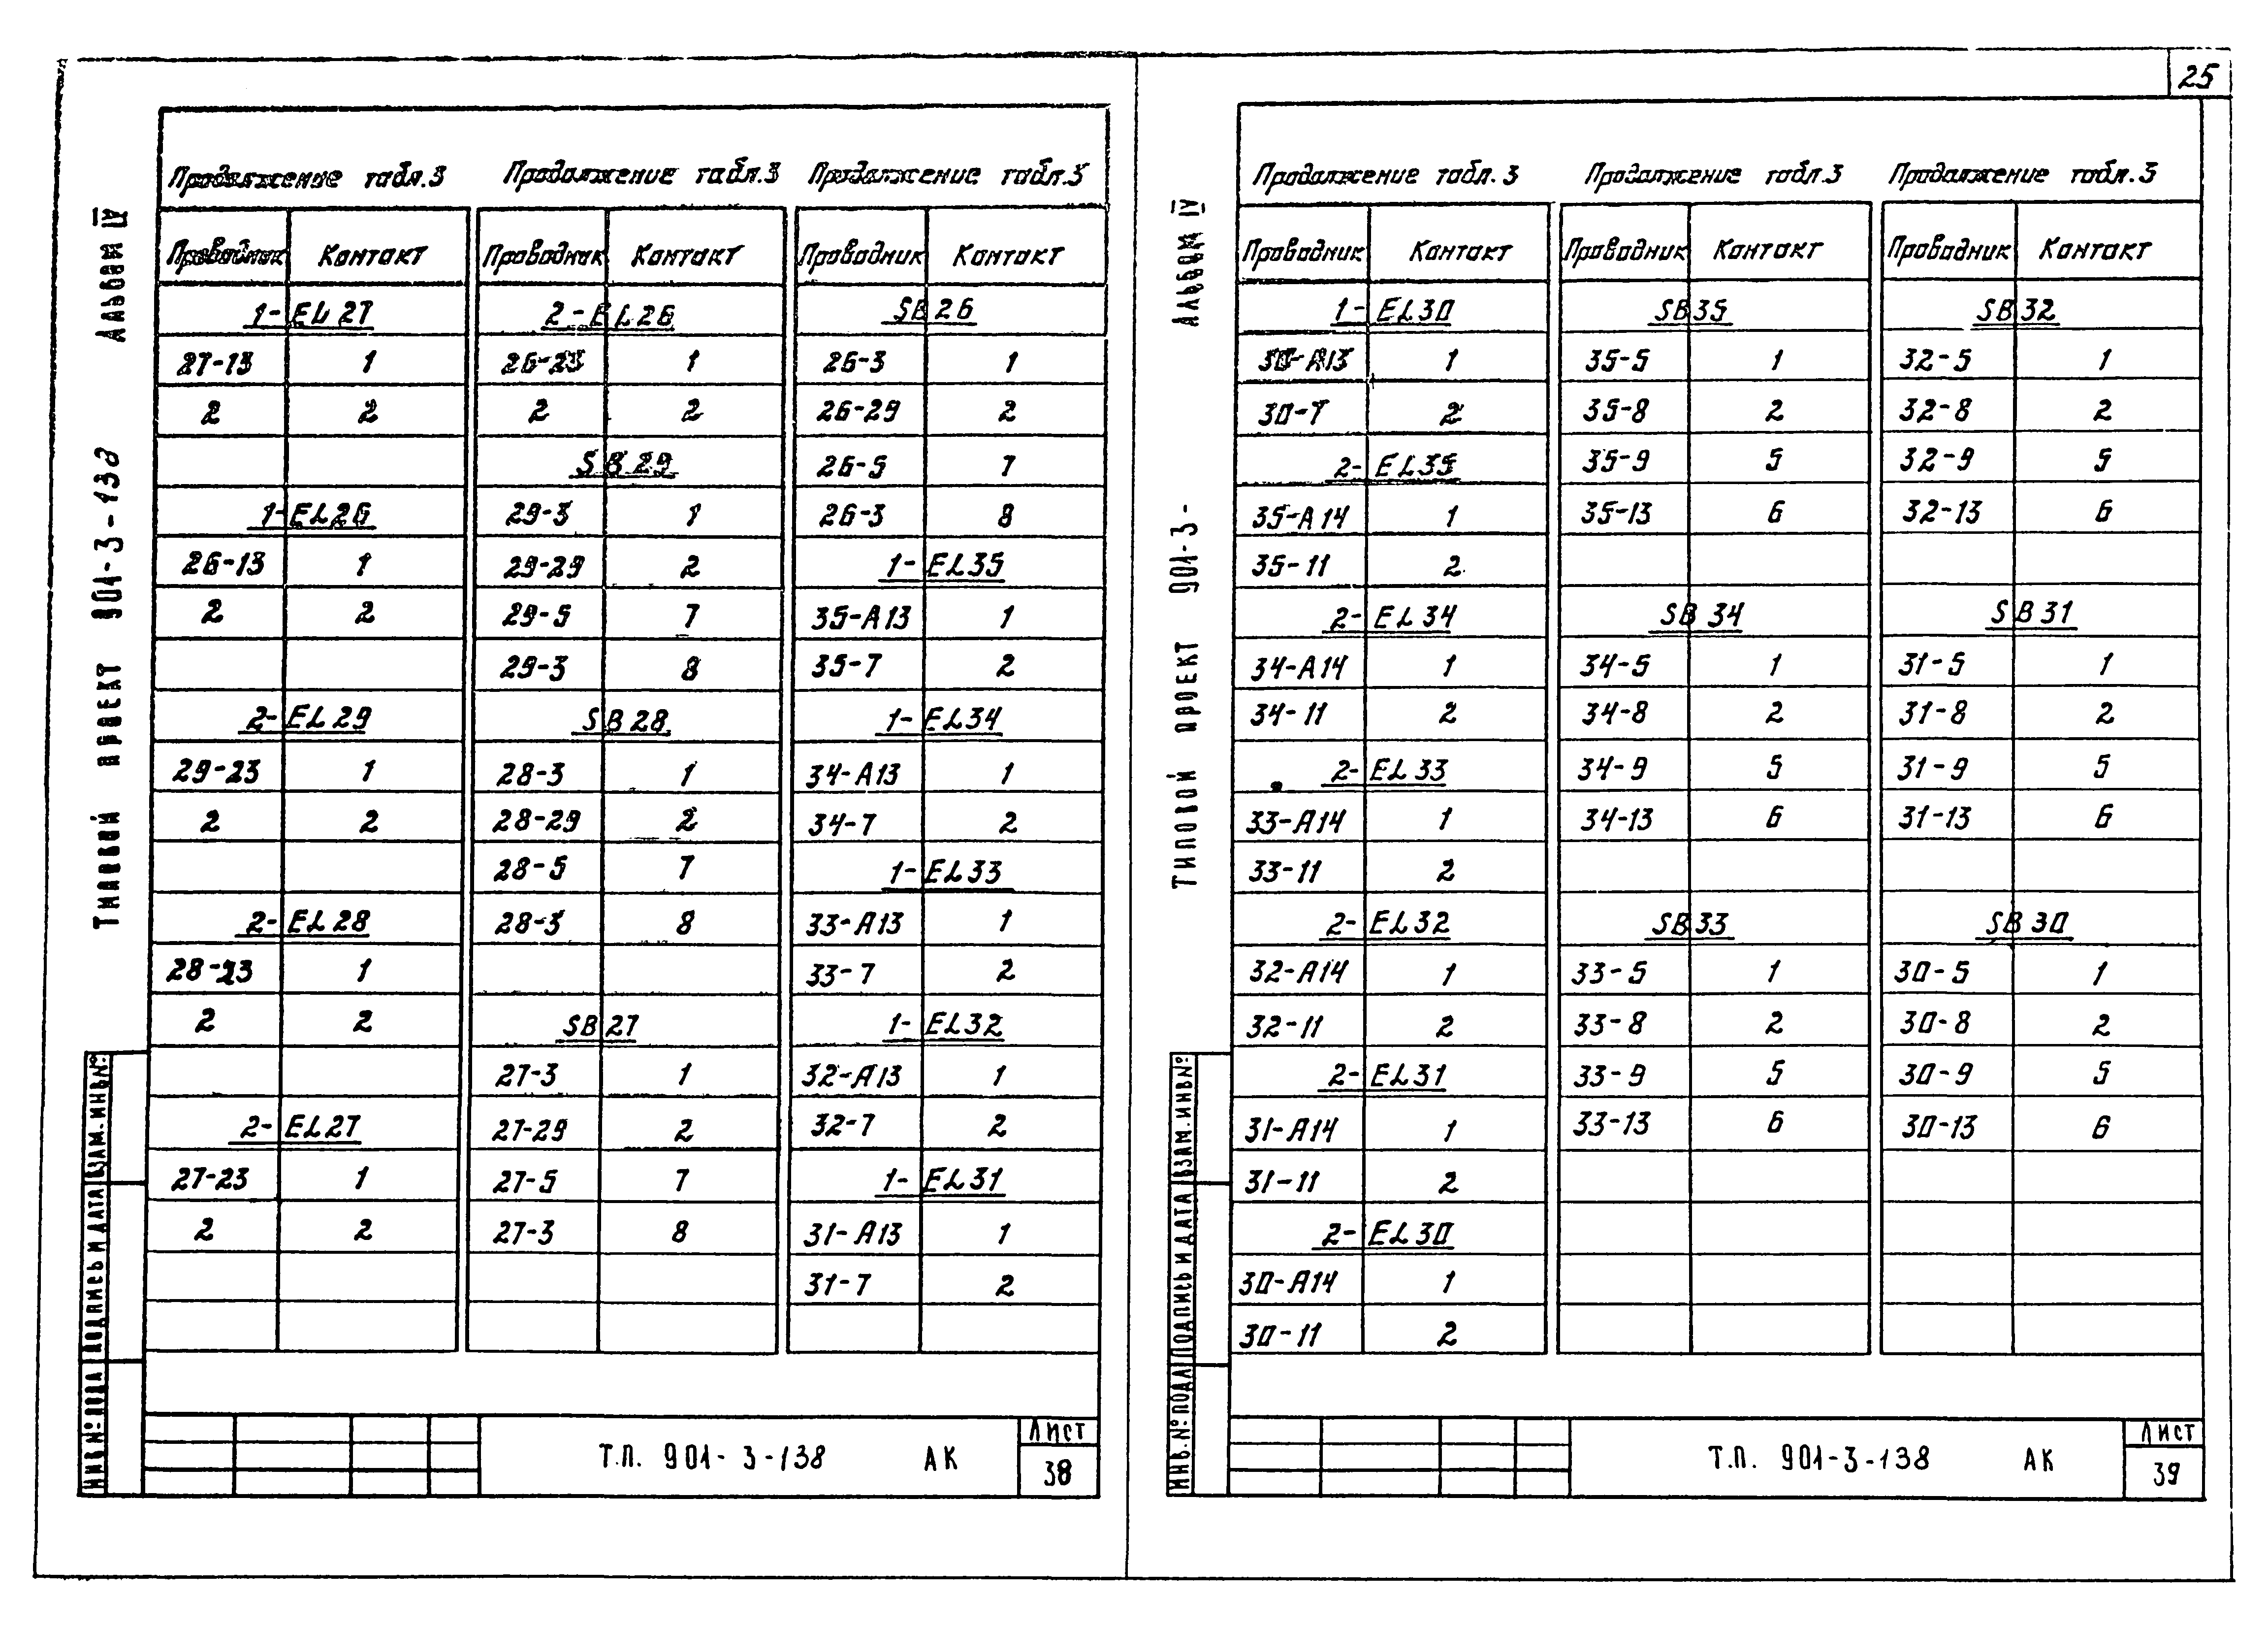 25
Альбом IV
Типовой проект 901-3-138
Продолжение табл.3
Проводник Контакт
1-EL27
27-13 1
2 2
1-EL26
26-13 1
2 2
2-EL29
29-23 1
2 2
2-EL28
28-23 1
2 2
2-EL27
27-23 1
2 2
Продолжение табл.3
Проводник Контакт
2-EL26
26-23 1
2 2
SB29
29-3 1
29-29 2
29-5 7
29-3 8
SB28
28-3 1
28-29 2
28-5 7
28-3 8
SB27
27-3 1
27-29 2
27-5 7
27-3 8
Продолжение табл.3
Проводник Контакт
SB26
26-3 1
26-29 2
26-5 7
26-3 8
1-EL35
35-А13 1
35-7 2
1-EL34
34-А13 1
34-7 2
1-EL33
33-А13 1
33-7 2
1-EL32
32-А13 1
32-7 2
1-EL31
31-А13 1
31-7 2
Инв.№ подл Подпись и дата Взам.инв№
Т.П. 901-3-138 АК
Лист
38
Альбом IV
Типовой проект 901-3-
Продолжение табл.3
Проводник Контакт
1-EL30
30-А13 1
30-7 2
2-EL35
35-А14 1
35-11 2
2-EL34
34-А14 1
34-11 2
2-EL33
33-А14 1
33-11 2
2-EL32
32-А14 1
32-11 2
2-EL31
31-А14 1
31-11 2
2-EL30
30-А14 1
30-11 2
Продолжение табл.3
Проводник Контакт
SB35
35-5 1
35-8 2
35-9 5
35-13 6
SB34
34-5 1
34-8 2
34-9 5
34-13 6
SB33
33-5 1
33-8 2
33-9 5
33-13 6
Продолжение табл.3
Проводник Контакт
SB32
32-5 1
32-8 2
32-9 5
32-13 6
SB31
31-5 1
31-8 2
31-9 5
31-13 6
SB30
30-5 1
30-8 2
30-9 5
30-13 6
Инв.№ подл Подпись и дата Взам.инв№
Т.П. 901-3-138 АК
Лист
39